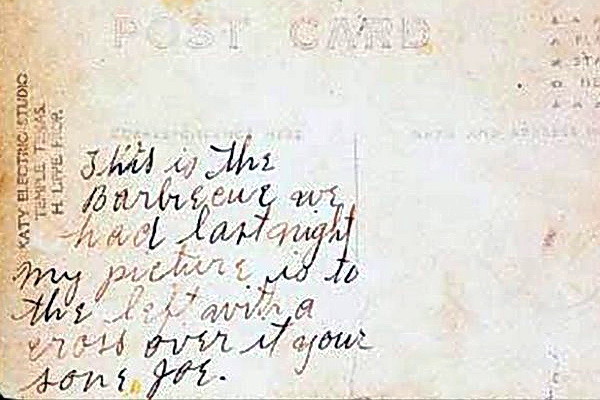 POST CARD
KATY ELECTRIC STUDIO
TEMPLE TEXAS.
H. LIPPE PROP.
CORRESPONDENCE HERE
NAME AND ADDRESS
This is the
Barbecue we
had last night
My picture is to
the left with a
cross over it your
sone Joe.